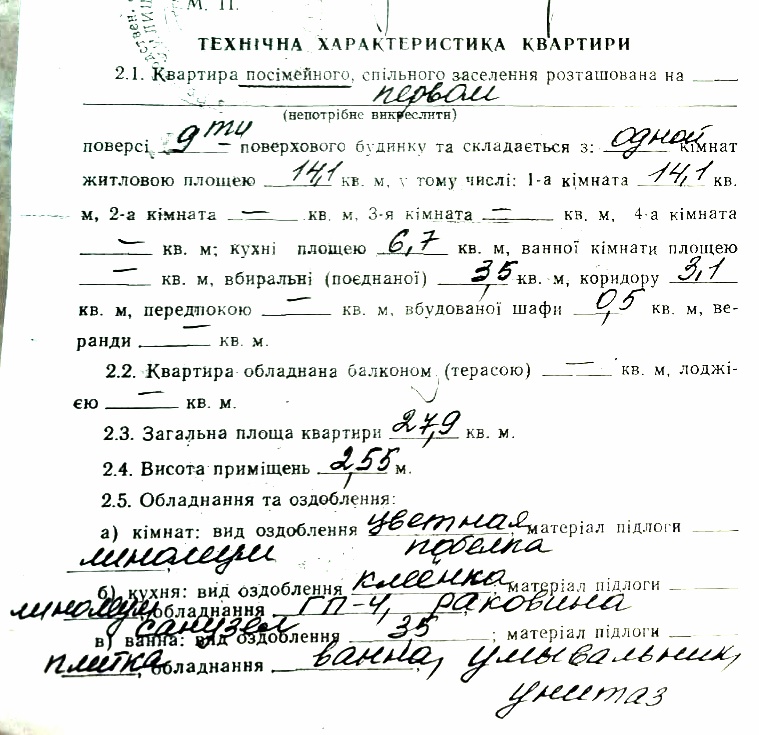 М. П.
ТЕХНІЧНА ХАРАКТЕРИСТИКА КВАРТИРИ
2.1. Квартира посімейного, спільного заселення розташована на
первом
(непотрібне викреслити)
поверсі 9ти — поверхового будинку та складається з: одной кімнат
житловою площею 14,1 кв. м, у тому числі: 1-а кімната 14,1 кв.
м, 2-а кімната — кв. м, 3-я кімната — кв. м, 4-а кімната
— кв. м; кухні площею 6,7 кв. м, ванної кімнати площею
— кв. м, вбиральні (поєднаної) 3,5 кв. м, коридору 3,1
кв. м, передпокою — кв. м, вбудованої шафи 0,5 кв. м, ве-
ранди — кв. м.
2.2. Квартира обладнана балконом (терасою) — кв. м, лоджі-
єю — кв. м.
2.3. Загальна площа квартири 27,9 кв. м.
2.4. Висота приміщень 2,55 м.
2.5. Обладнання та оздоблення:
а) кімнат: вид оздоблення цветная матеріал підлоги
линолеум побелка
б) кухня: вид оздоблення клеёнка матеріал підлоги
линолеум обладнання ГП-4, раковина
санузел
в) ванна: вид оздоблення 3,5; матеріал підлоги
плитка, обладнання ванна, умывальник,
унитаз